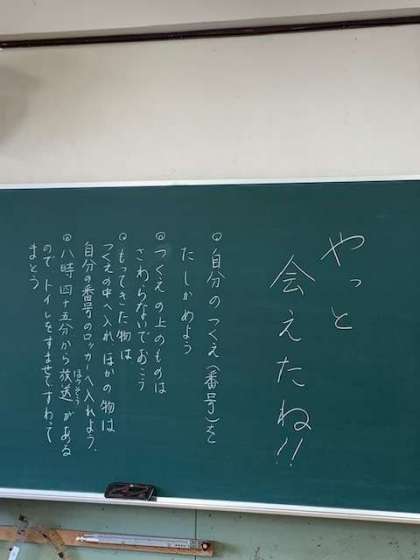 やっと
会えたね!!
◎自分のつくえ(番号)を
たしかめよう
◎つくえの上のものは
さわらないでおこう
◎もってきた物は
つくえの中へ入れ ほかの物は
自分の番号のロッカーへ入れよう.
◎八時四十五分から放送(ほうそう)がある
のでトイレをすませてすわって
まとう